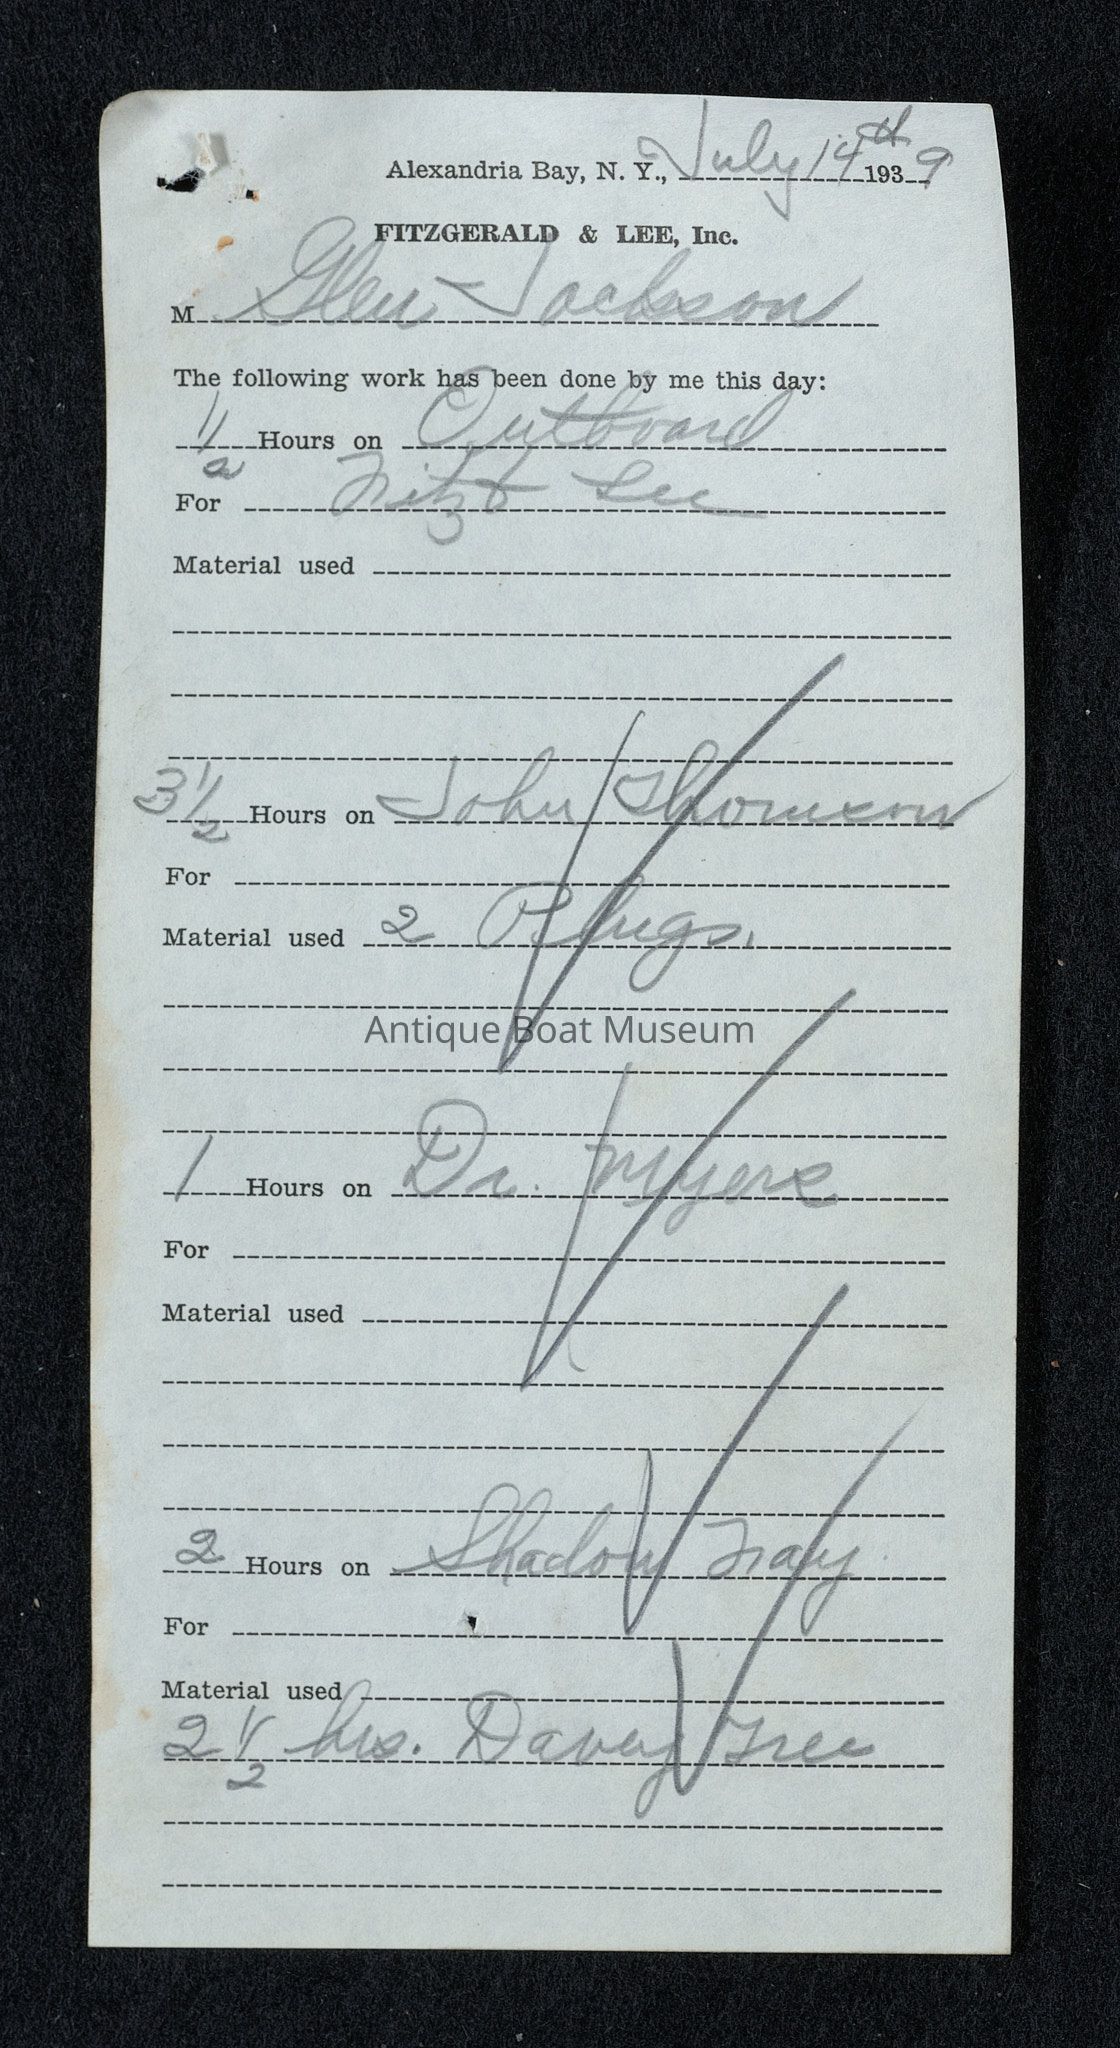 Alexandria Bay, N. Y., July 14th 1939
FITZGERALD & LEE, Inc.
M Glen Jackson
The following work has been done by me this day:
1/2 Hours on Outboard
For Fitz & Lee
Material used
3 1/2 Hours on John Thomson
For
Material used 2 Plugs.
Antique Boat Museum
1 Hours on Dr. Myers
For
Material used
2 Hours on Shadow
For
Material used
2 1/2 hrs. Davey Tree